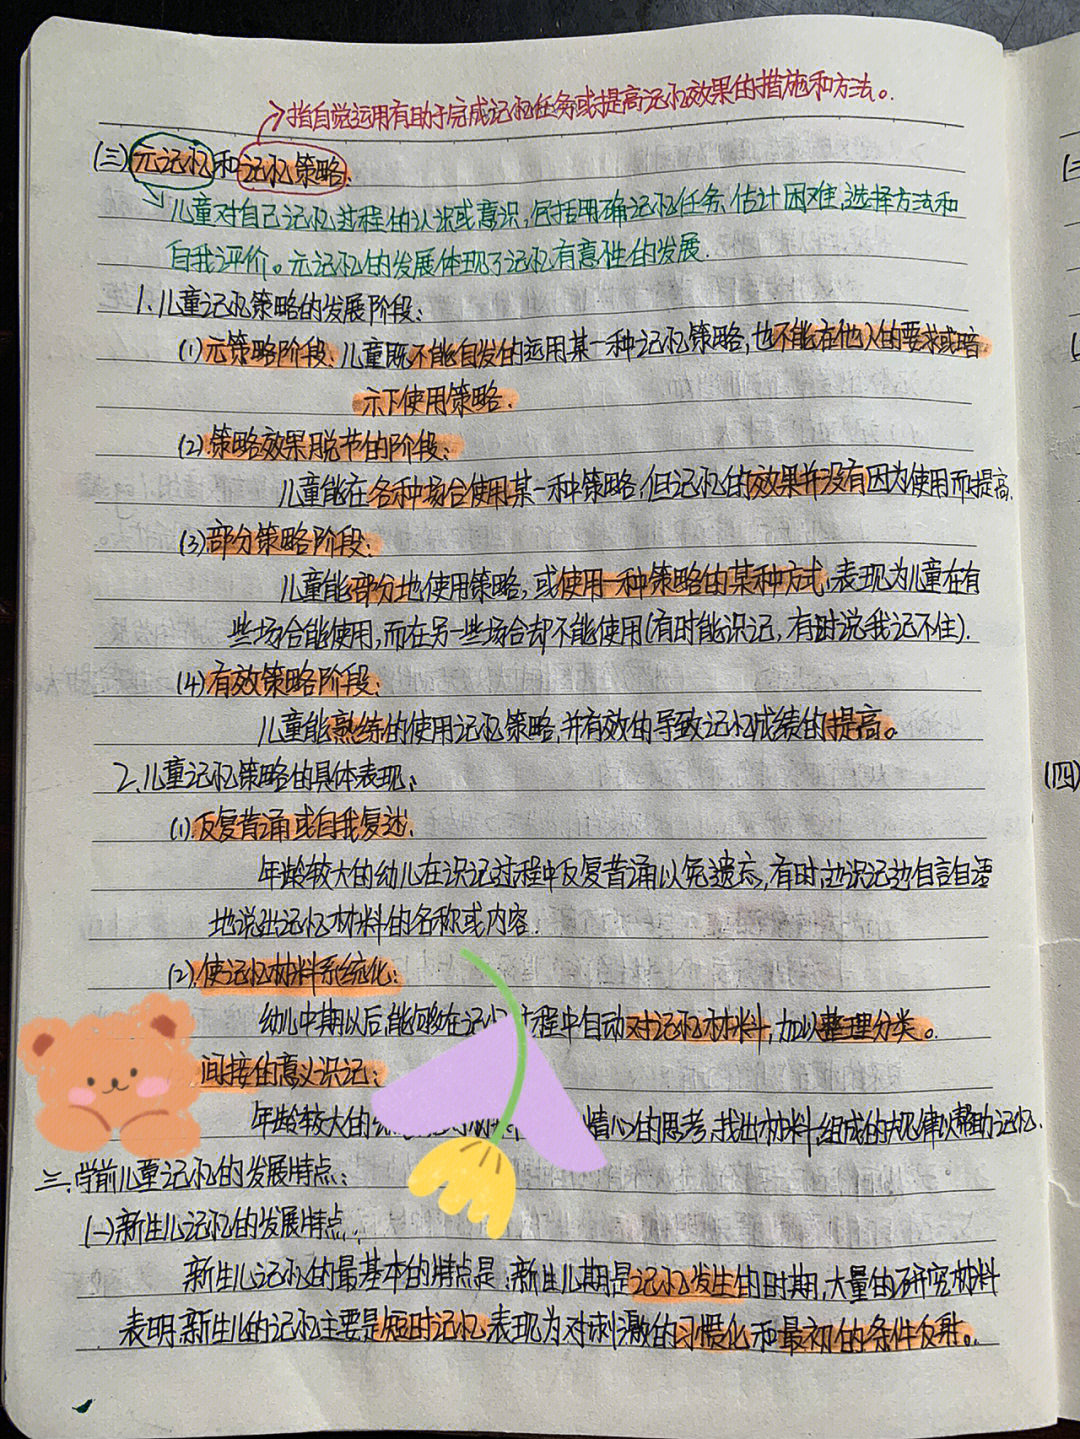 →指自觉运用有助于完成记忆任务或提高记忆效果的措施和方法。
(三)元记忆和记忆策略.
儿童对自己记忆过程的认识或意识,包括明确记忆任务、估计困难、选择方法和
自我评价。元记忆的发展体现了记忆有意性的发展.
1.儿童记忆策略的发展阶段:
(1)元策略阶段:儿童既不能自发的运用某一种记忆策略,也不能在他人的要求或暗
示下使用策略.
(2).策略效果脱节的阶段:
儿童能在各种场合使用某一种策略,但记忆的效果并没有因为使用而提高.
(3)部分策略阶段:
儿童能部分地使用策略,或使用一种策略的某种方式,表现为儿童在有
些场合能使用,而在另一些场合却不能使用(有时能识记,有时说我记不住).
(4)有效策略阶段:
儿童能熟练的使用记忆策略,并有效的导致记忆成绩的提高。
2.儿童记忆策略的具体表现:
(1).反复背诵或自我复述.
年龄较大的幼儿在识记过程中反复背诵以免遗忘,有时边识记边自言自语
地说出记忆材料的名称或内容.
(2).使记忆材料系统化:
幼儿中期以后,能够在记忆过程中自动对记忆材料,加以整理分类。
间接的意义识记:
年龄较大的 情心的思考,找出材料组成的规律以帮助记忆.
三.学前儿童记忆的发展特点:
(一)新生儿记忆的发展特点.
新生儿记忆的最基本的特点是:新生儿期是记忆发生的时期,大量的研究材料
表明,新生儿的记忆主要是短时记忆,表现为对刺激的习惯化和最初的条件反射。
(四)